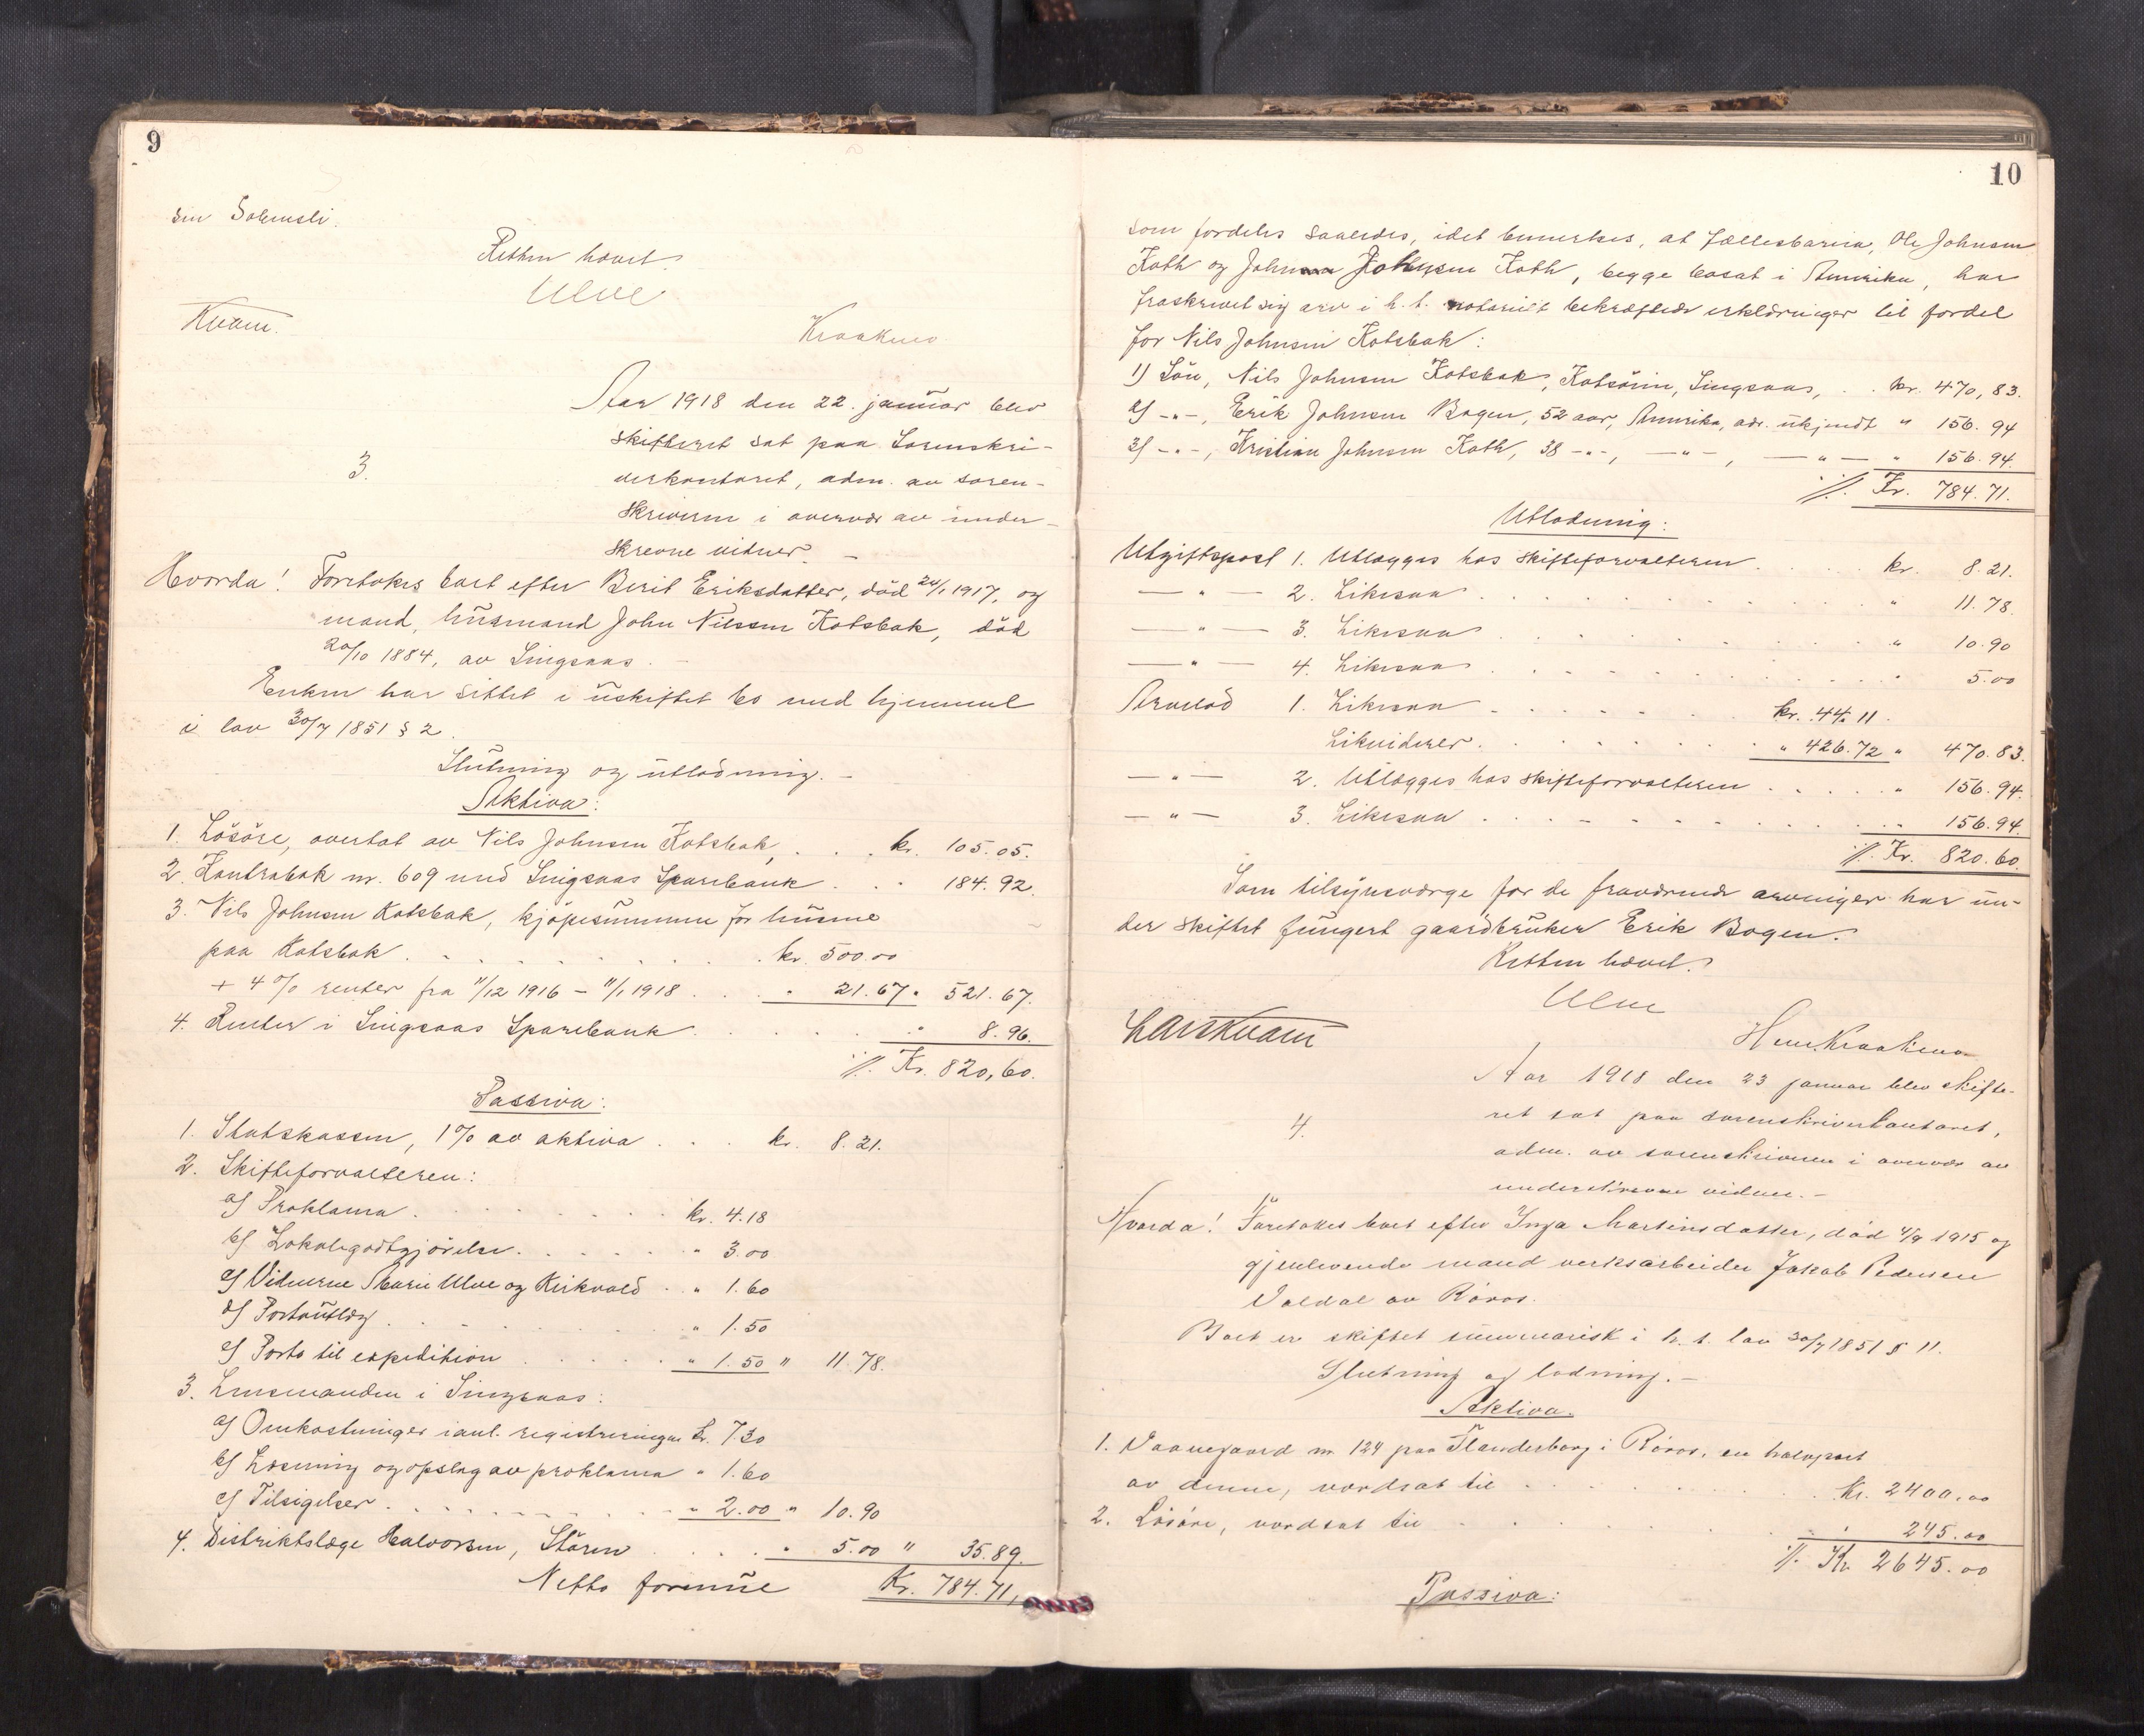 9
sen Solemsli.
Retten hævet.
Ulve
Kvam.
Kraakmo
Aar 1918 den 22. januar blev
skifteret sat paa Sorenskri-
verkontoret, adm. av soren-
skriveren i overvær av under-
skrevne vitner. –
3.
Hvorda! Foretokes boet efter Berit Eriksdatter, död 24/1 1917, og
mand, husmand John Nilssen Kotsbak, död
20/10 1884, av Singsaas. –
Enken har sittet i uskiftet bo med hjemmel
i lov 30/7 1851 § 2.
Slutning og utlodning. –
Aktiva:
1. Lösöre, overtat av Nils Johnsen Kotsbak, . . . kr. 105.05.
2. Kontrabok nr. 609 med Singsaas Sparebank . . . 184.92.
3. Nils Johnsen Kotsbak, kjöpesummen for husene
paa Kotsbak . . . . kr. 500.00
+ 4 % renter fra 11/12 1916 – 11/1 1918 . . . " 21.67 " 521.67.
4. Renter i Singsaas Sparebank . . . . " 8.96.
./. Kr. 820,60.
Passiva:
1. Statskassen, 1 % av aktiva . . . kr. 8.21.
2. Skifteforvalteren:
a) Proklama . . . . kr. 4.18
b) Lokalegodtgjörelse . . . . " 3.00
c) Vitnerne Marie Ulve og Kirkvold . . " 1.60
d) Portoutlæg . . . . " 1.50
e) Porto til expedition . . . . " 1.50 " 11.78.
3. Lensmanden i Singsaas:
a) Omkostninger i anl. registreringen kr. 7.30
b) Læsning og opslag av proklama " 1.60
c) Tilsigelser . . . . " 2.00 " 10.90
4. Distriktslæge Halvorsen, Stören . . . . " 5.00 " 35.89.
Netto formue Kr. 784.71,
10
som fordeles saaledes, idet bemerkes, at fællesbarna, Ole Johnsen
Koth og John Johnsen Koth, begge bosat i Amerika, har
fraskrevet sig arv i h.t. notarielt bekræftede erklæringer til fordel
for Nils Johnsen Kotsbak:
1) Sön, Nils Johnsen Kotsbak, Kotsöien, Singsaas, . . kr. 470,83.
2) –"–, Erik Johnsen Bogen, 52 aar, Amerika, adr. ukjendt " 156.94
3) –"–, Kristian Johnsen Koth, 38 –"–, –"–, –"– " 156.94.
./. Kr. 784.71.
Utlodning:
Utgiftspost 1. Utlægges hos skifteforvalteren . . . . kr. 8.21.
–"– 2. Likesaa . . . . " 11.78.
–"– 3. Likesaa . . . . " 10.90
–"– 4. Likesaa . . . . " 5.00
Arvelod 1. Likesaa . . . . kr. 44.11.
Likviderer . . . . " 426.72 " 470.83.
–"– 2. Utlægges hos skifteforvalteren . . . . " 156.94.
–"– 3. Likesaa . . . . " 156.94.
./. Kr. 820.60.
Som tilsynsværge for de fraværende arvinger har un-
der skiftet fungert gaardbruker Erik Bogen.
Retten hævet.
Ulve
Lars Kvam
H Kraakmo
Aar 1918 den 23 januar blev skifte-
ret sat paa sorenskriverkontoret,
adm. av sorenskriveren i overvær av
underskrevne vidner. –
4.
Hvorda! Foretokes boet efter Inga Martinsdatter, död 4/9 1915 og
gjenlevende mand verksarbeider Jakob Pedersen
Valdal av Röros.
Boet er skiftet summarisk i h.t. lov 30/7 1851 § 11.
Slutning og lodning. –
Aktiva.
1. Vaanegaard nr. 124 paa Flanderborg i Röros, en halvpart
av denne, værdsat til . . . . Kr. 2400.00
2. Lösöre, værdsat til . . . . " 245.00
./. Kr 2645.00
Passiva: